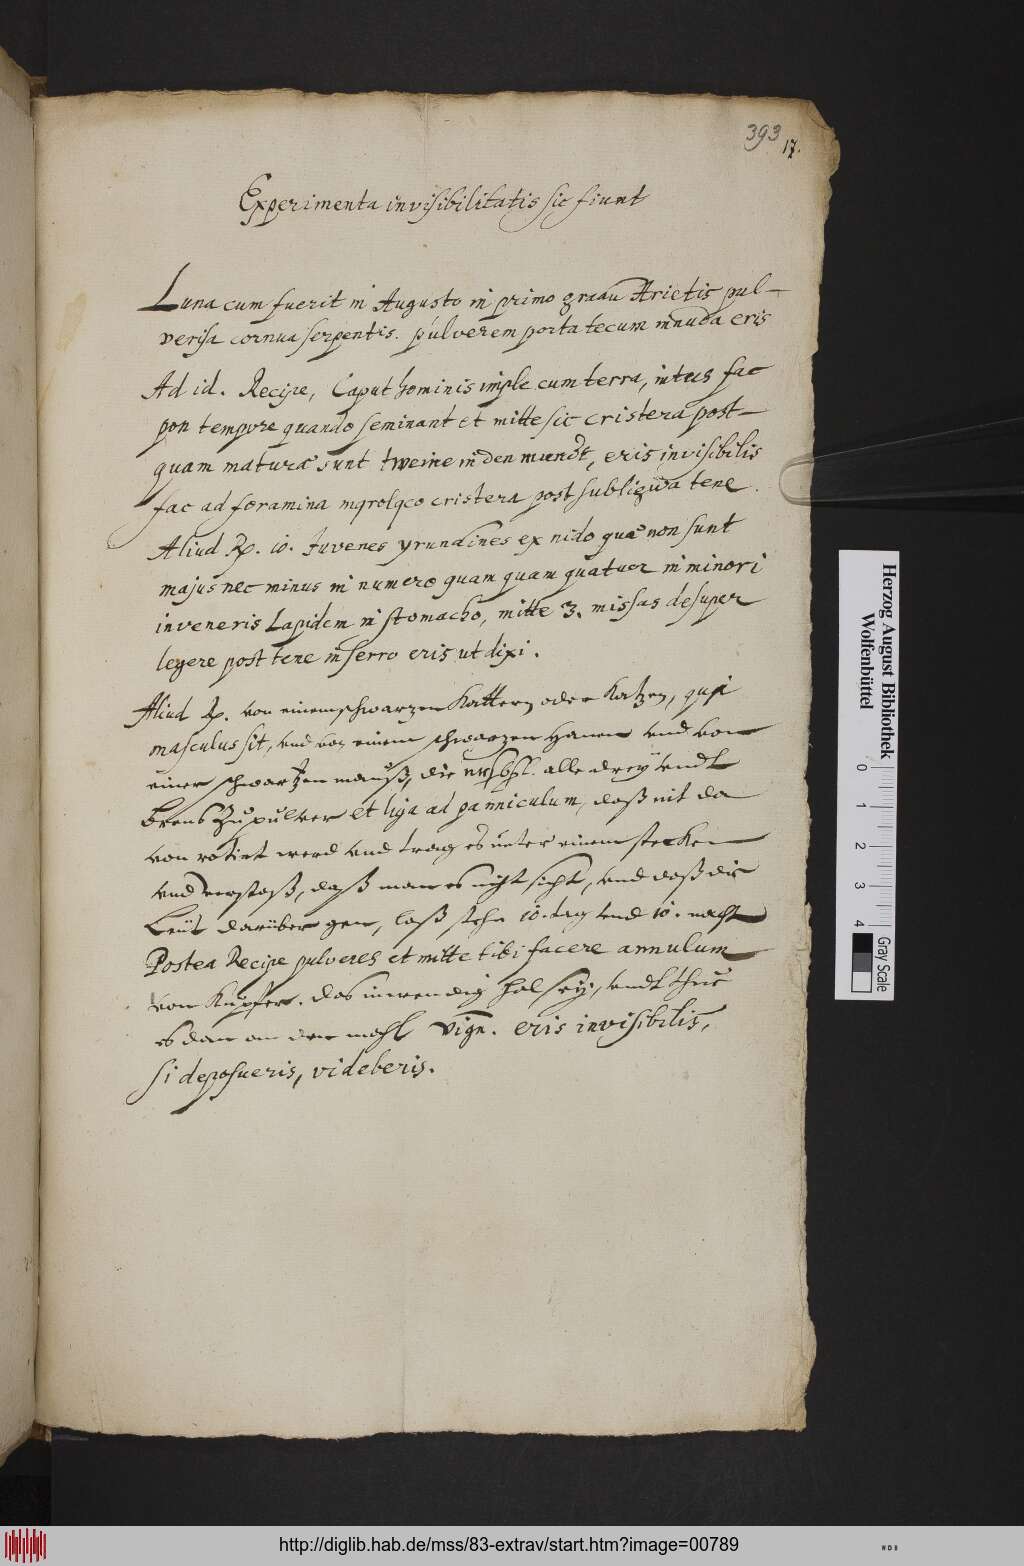 393
17.
Experimenta invisibilitatis sic fiunt
Luna cum fuerit in Augusto in primo gradu Arietis pul-
verisa cornua serpentis. pulverem porta tecum in nuda eris
Ad id. Recipe, Caput hominis imple cum terra, intus fac
pon tempore quando seminant et mitte sic cristera post-
quam maturæ sunt tweine in den mundt, eris invisibilis
fac ad foramina cristera post subligua tene.
Aliud Rp. 10. Juvenes yrundines ex nido quæ non sunt
majus nec minus in numero quam quam quatuor in minori
inveneris Lapidem in stomacho, mitte 3. missas desuper
legere post tene in ferro eris ut dixi.
Aliud Rp. von einem schwarzen Kattern oder Katzen, qui
masculus sit, vnd von einem schwarzen Hanen vnd von
einer schwartzen mauß, die alle drey vndt
brens Zu pulver et liga ad panniculum, daß nit da
von rotirt werd vnd trag es unter einem stecken
vnd verstoß, daß man es nicht sicht, vnd daß die
Leüt darüber gen, laß stehn 10. tag vnd 10. nacht
Postea Recipe pulveres et mitte tibi facere annulum
von Kupfer. das inwendig hol sey, vndt thue
es dan an den eris invisibilis,
si deposueris, videberis.
Herzog August Bibliothek
Wolfenbüttel
0 1 2 3 4
Gray Scale
http://diglib.hab.de/mss/83-extrav/start.htm?image=00789